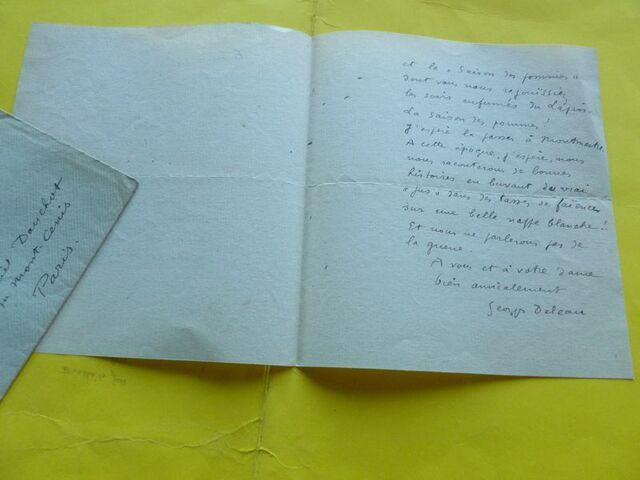 et la "Saison des pommes"
dont vous nous réjouissiez
les soirs enfumés du Lapin.
La saison des pommes !
J'espère la passer à Montmartre.
A cette époque, j'espère, nous
nous raconterons de bonnes
histoires en buvant du vrai
"jus" dans des tasses de faïences
sur une belle nappe blanche !
Et nous ne parlerons pas de
la guerre
A vous et à votre dame
bien amicalement
Georges Deleau
Danchot
Mont Cenis
Paris.